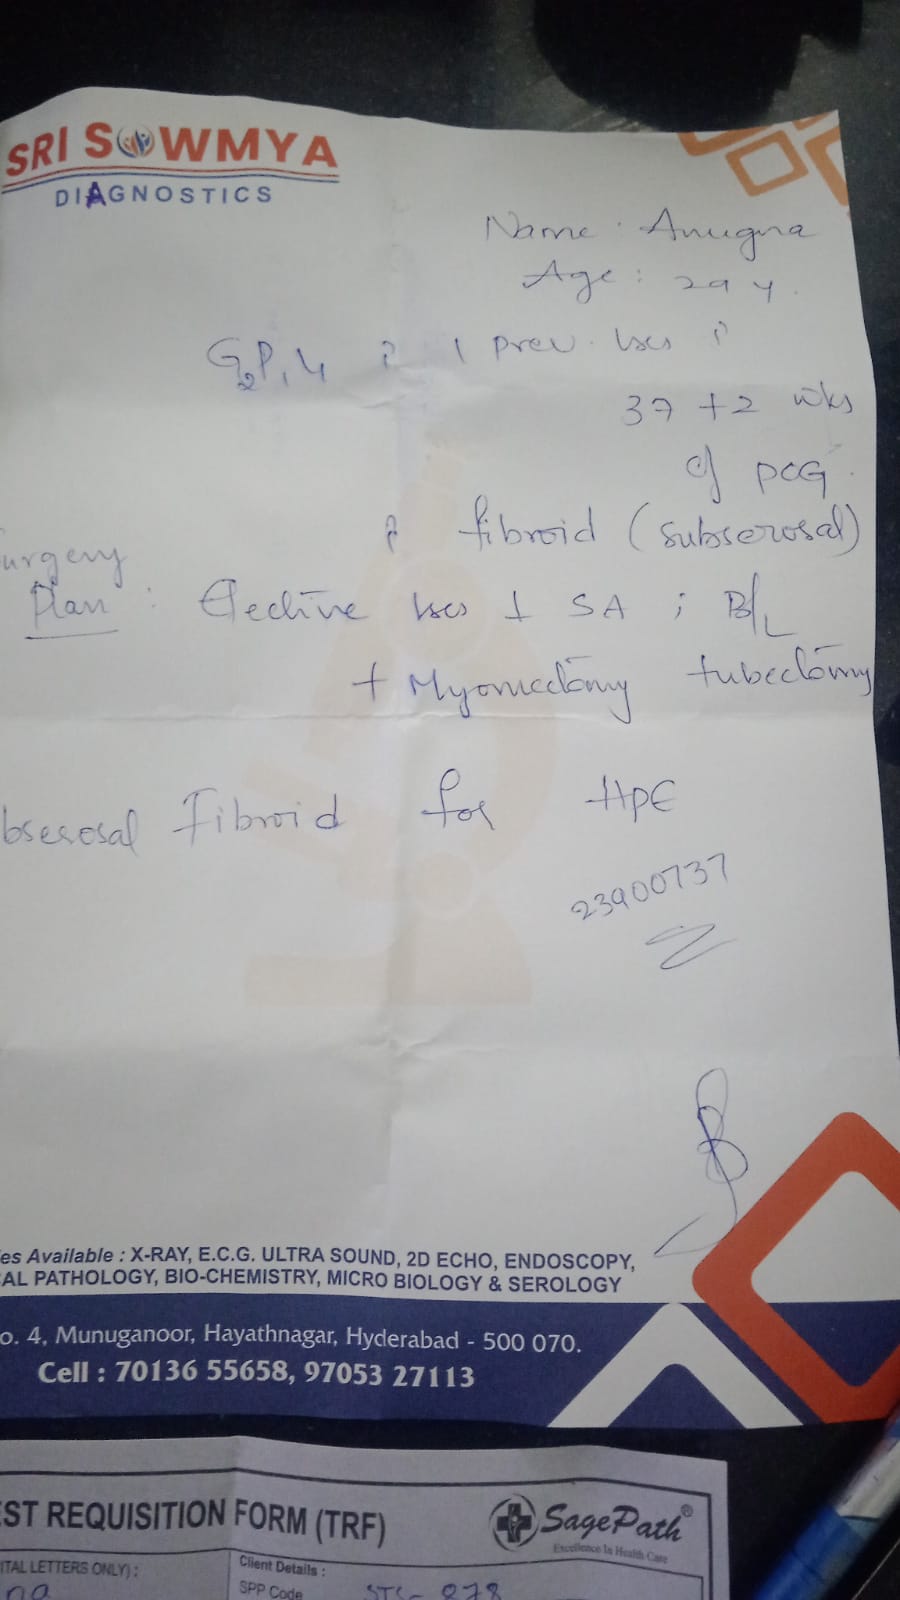 SRI SOWMYA
DIAGNOSTICS
Name : Anugna
Age : 29 y.
G2P1L1 c̄ 1 prev. LSCS c̄
37 +2 wks
of POG
c̄ fibroid (subserosal)
Surgery
Plan : Elective LSCS ↓ SA ; B/L
+ Myomectomy tubectomy
bserosal Fibroid for HPE
23900737
es Available : X-RAY, E.C.G. ULTRA SOUND, 2D ECHO, ENDOSCOPY,
CAL PATHOLOGY, BIO-CHEMISTRY, MICRO BIOLOGY & SEROLOGY
o. 4, Munuganoor, Hayathnagar, Hyderabad - 500 070.
Cell : 70136 55658, 97053 27113
EST REQUISITION FORM (TRF)
SagePath®
Excellence In Health Care
ITAL LETTERS ONLY) :
Client Details :
na
SPP Code STS- 878